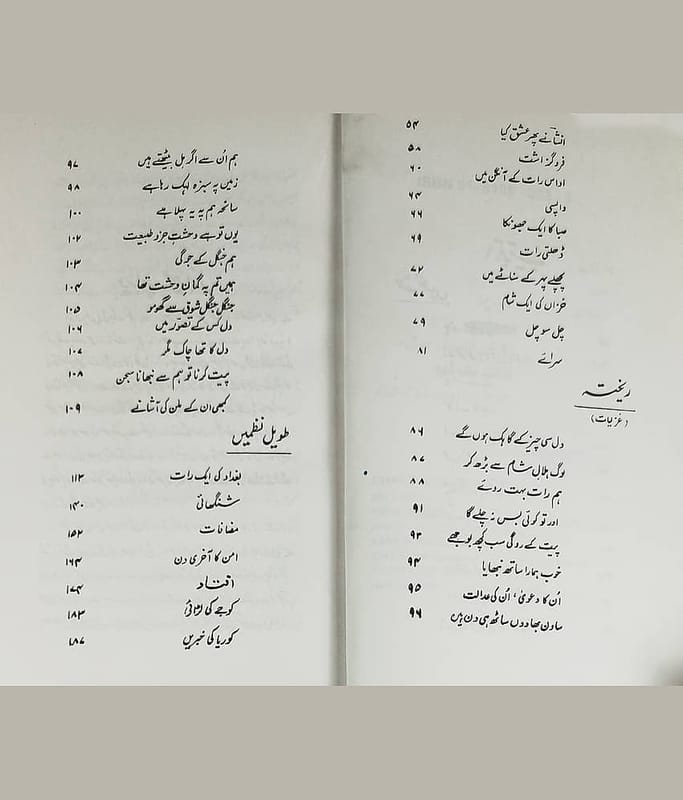 انشا نے پھر عشق کیا ۵۴
فروگزاشت ۵۸
اداس رات کے آنگن میں ۶۰
واپسی ۶۴
صبا کا ایک جھونکا ۶۶
ڈھلتی رات ۶۹
پچھلے پہر کے سناٹے میں ۷۲
خزاں کی ایک شام ۷۷
چل سو چل ۷۹
سرائے ۸۱
ریختہ
(غزلیات)
دل سی چیز کے گاہک ہوں گے ۸۶
لوگ ہلالِ شام سے بڑھ کر ۸۷
ہم رات بہت روئے ۸۸
اور تو کوئی بس نہ چلے گا ۹۱
پریت کے روگی سب کچھ بوجھے ۹۳
خوب ہمارا ساتھ نبھایا ۹۴
اُن کا دعویٰ، اُن کی عدالت ۹۵
ساون بھادوں ساٹھ ہی دن ہیں ۹۶
ہم اُن سے اگر مل بیٹھتے ہیں ۹۷
زمیں پہ سبزہ لہک رہا ہے ۹۸
سانحہ ہم پہ یہ پہلا ہے ۱۰۰
یوں تو ہے وحشت جزوِ طبیعت ۱۰۲
ہم جنگل کے جوگی ۱۰۳
ہمیں تم پہ گمانِ وحشت تھا ۱۰۴
جنگل جنگل شوق سے گھومو ۱۰۵
دل کس کے تصور میں ۱۰۶
دل کا تھا چاک مگر ۱۰۷
پریت کرنا تو ہم سے نبھانا سجن ۱۰۸
کبھی ان کے ملن کی آشا نے ۱۰۹
طویل نظمیں
بغداد کی ایک رات ۱۱۳
شنگھائی ۱۴۰
مضافات ۱۵۲
امن کا آخری دن ۱۶۴
افتاد ۱۷۴
کوجے کی لڑائی ۱۸۳
کوریا کی خبریں ۱۸۷